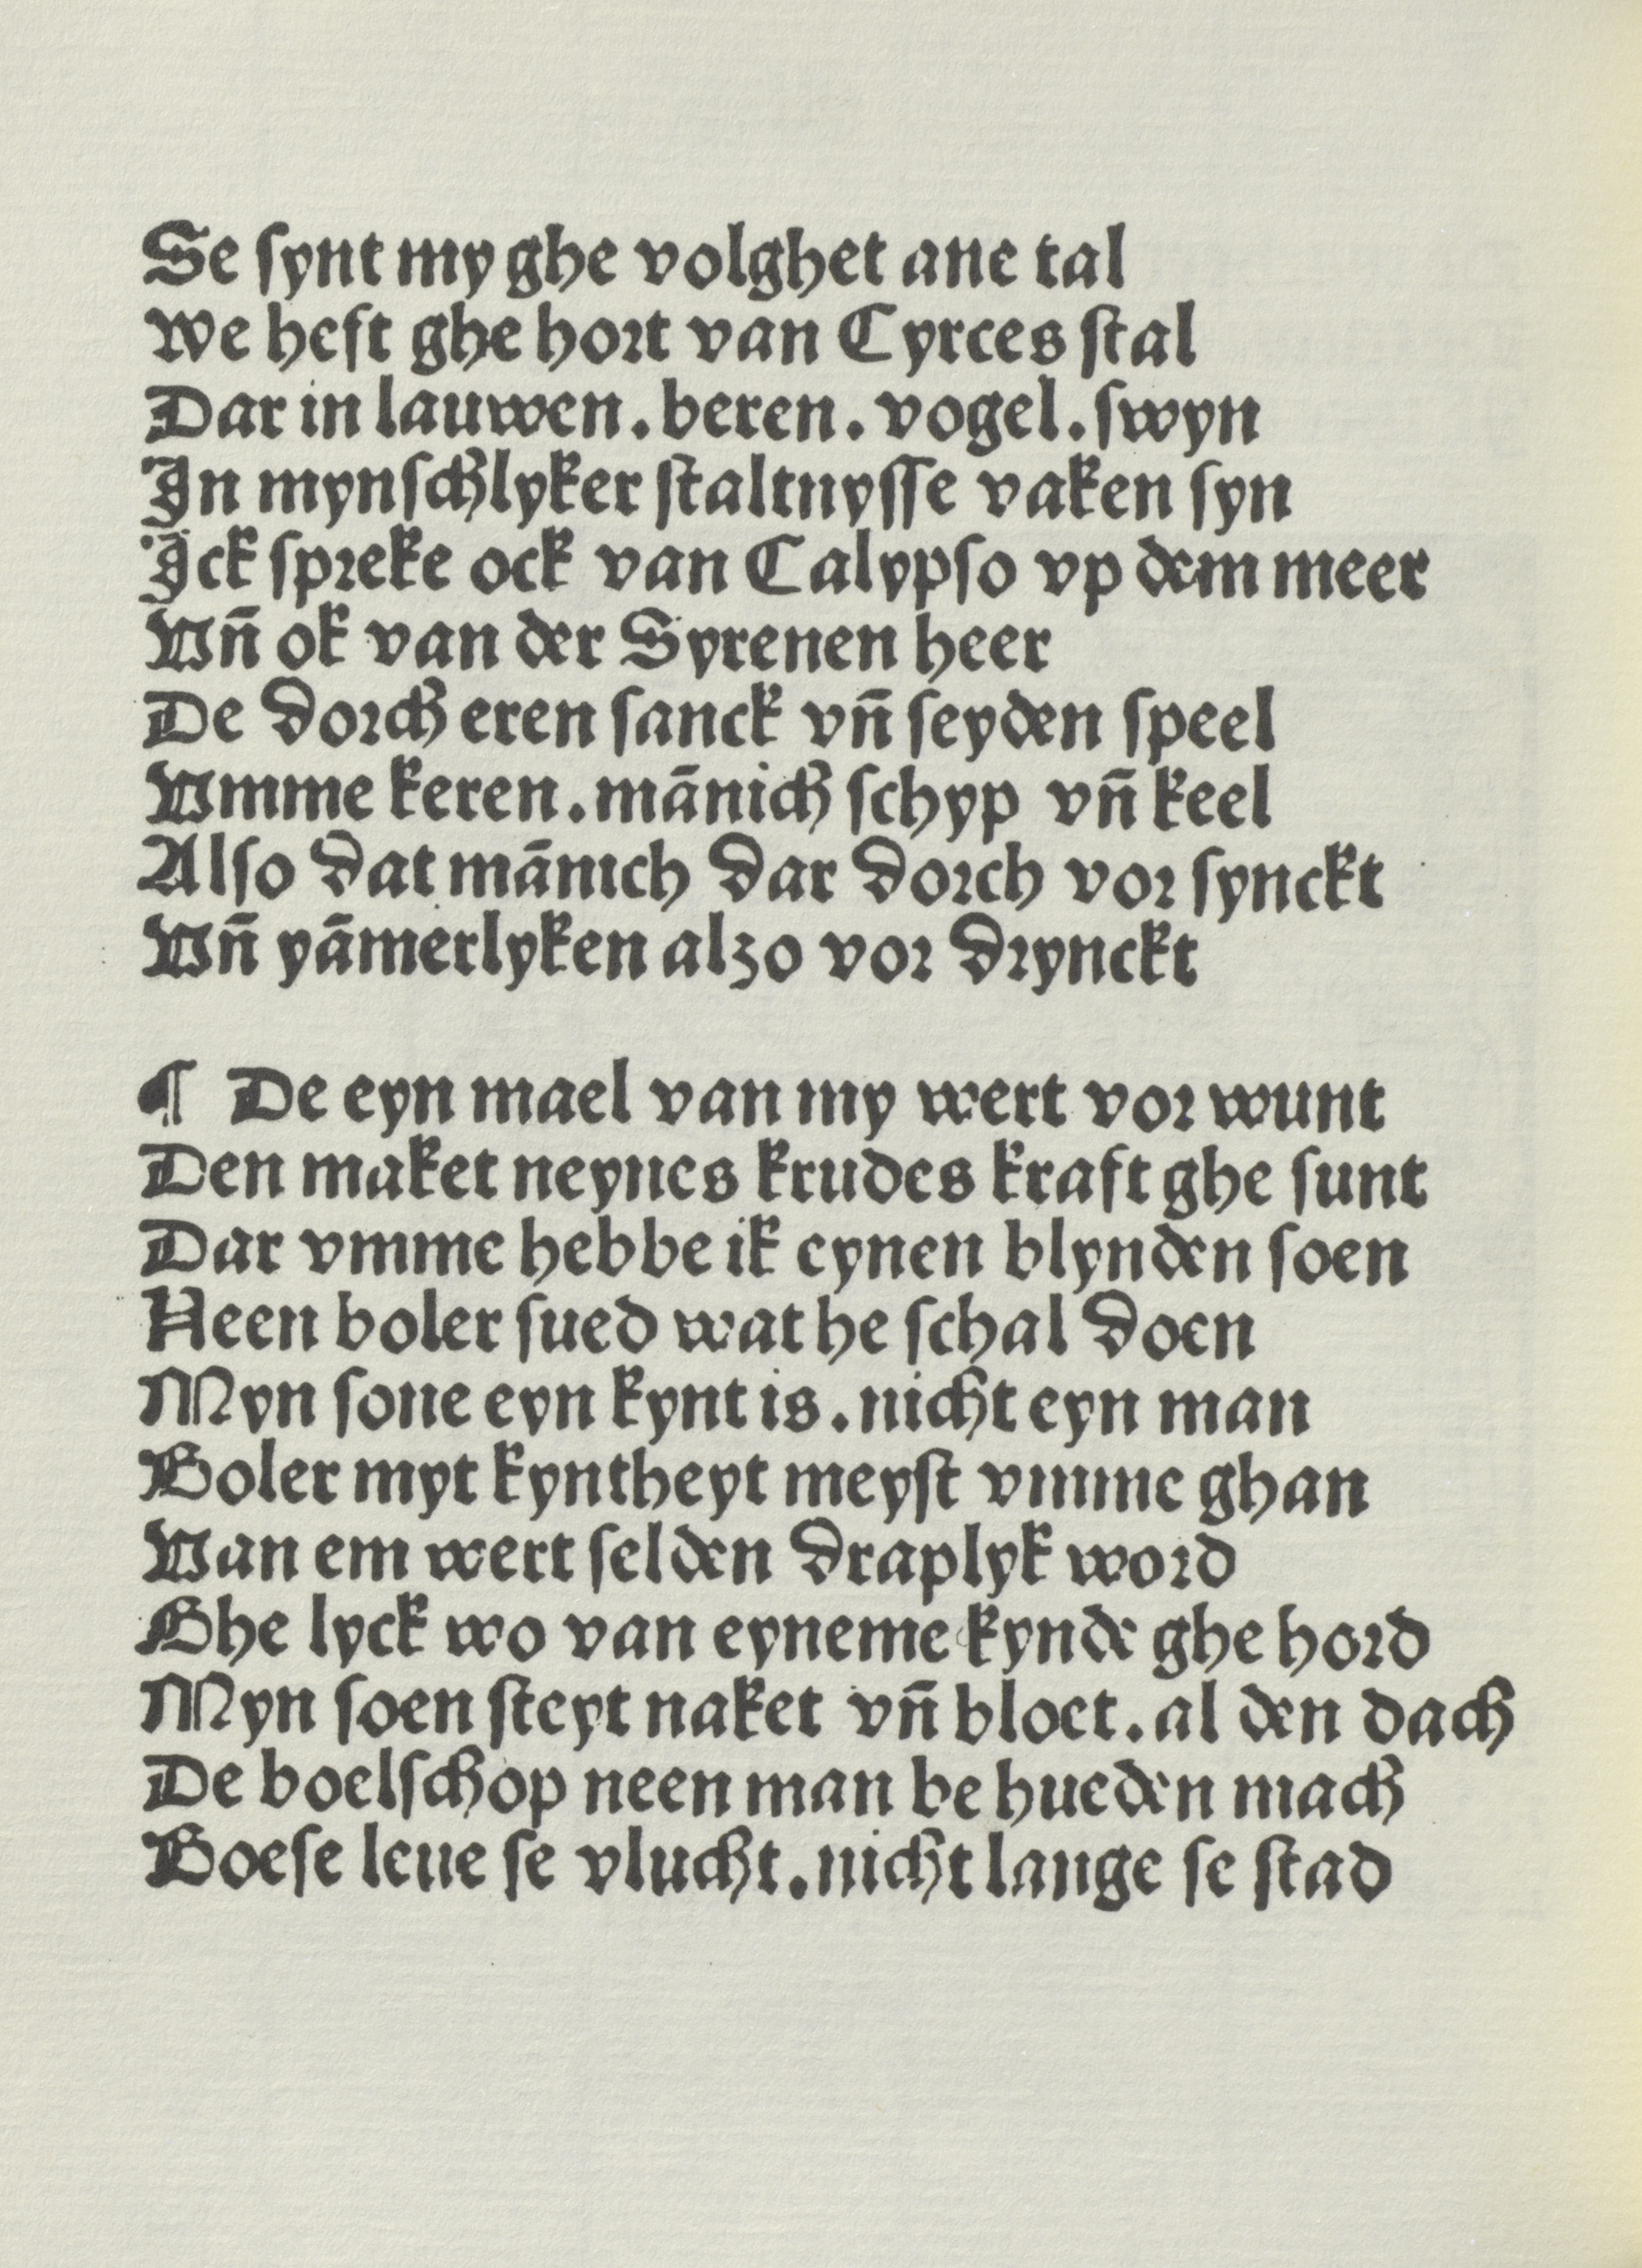 Se ſynt my ghe volghet ane tal
We heft ghe hoꝛt van Cyrces ſtal
Dar in lauwen. beren. vogel. ſwyn
In mynſchlyker ſtaltnyſſe vaken ſyn
Ick ſpꝛeke ock van Calypſo vp dem meer
Vn̄ ok van der Syrenen heer
De doꝛch eren ſanck vn̄ ſeyden ſpeel
Vmme keren. mānich ſchyp vn̄ keel
Alſo dat mānich dar doꝛch voꝛ ſynckt
Vn̄ yāmerlyken alzo voꝛ dꝛynckt
¶ De eyn mael van my wert voꝛ wunt
Den maket neynes krudes kraft ghe ſunt
Dar vmme hebbe ik eynen blynden ſoen
Neen boler ſued wat he ſchal doen
Myn ſone eyn kynt is. nicht eyn man
Boler myt kyntheyt meyſt vmme ghan
Van em wert ſelden draplyk woꝛd
Ghe lyck wo van eyneme kynde ghe hoꝛd
Myn ſoen ſteyt naket vn̄ bloet. al den dach
De boelſchop neen man be hueden mach
Boeſe leue ſe vlucht. nicht lange ſe ſtad